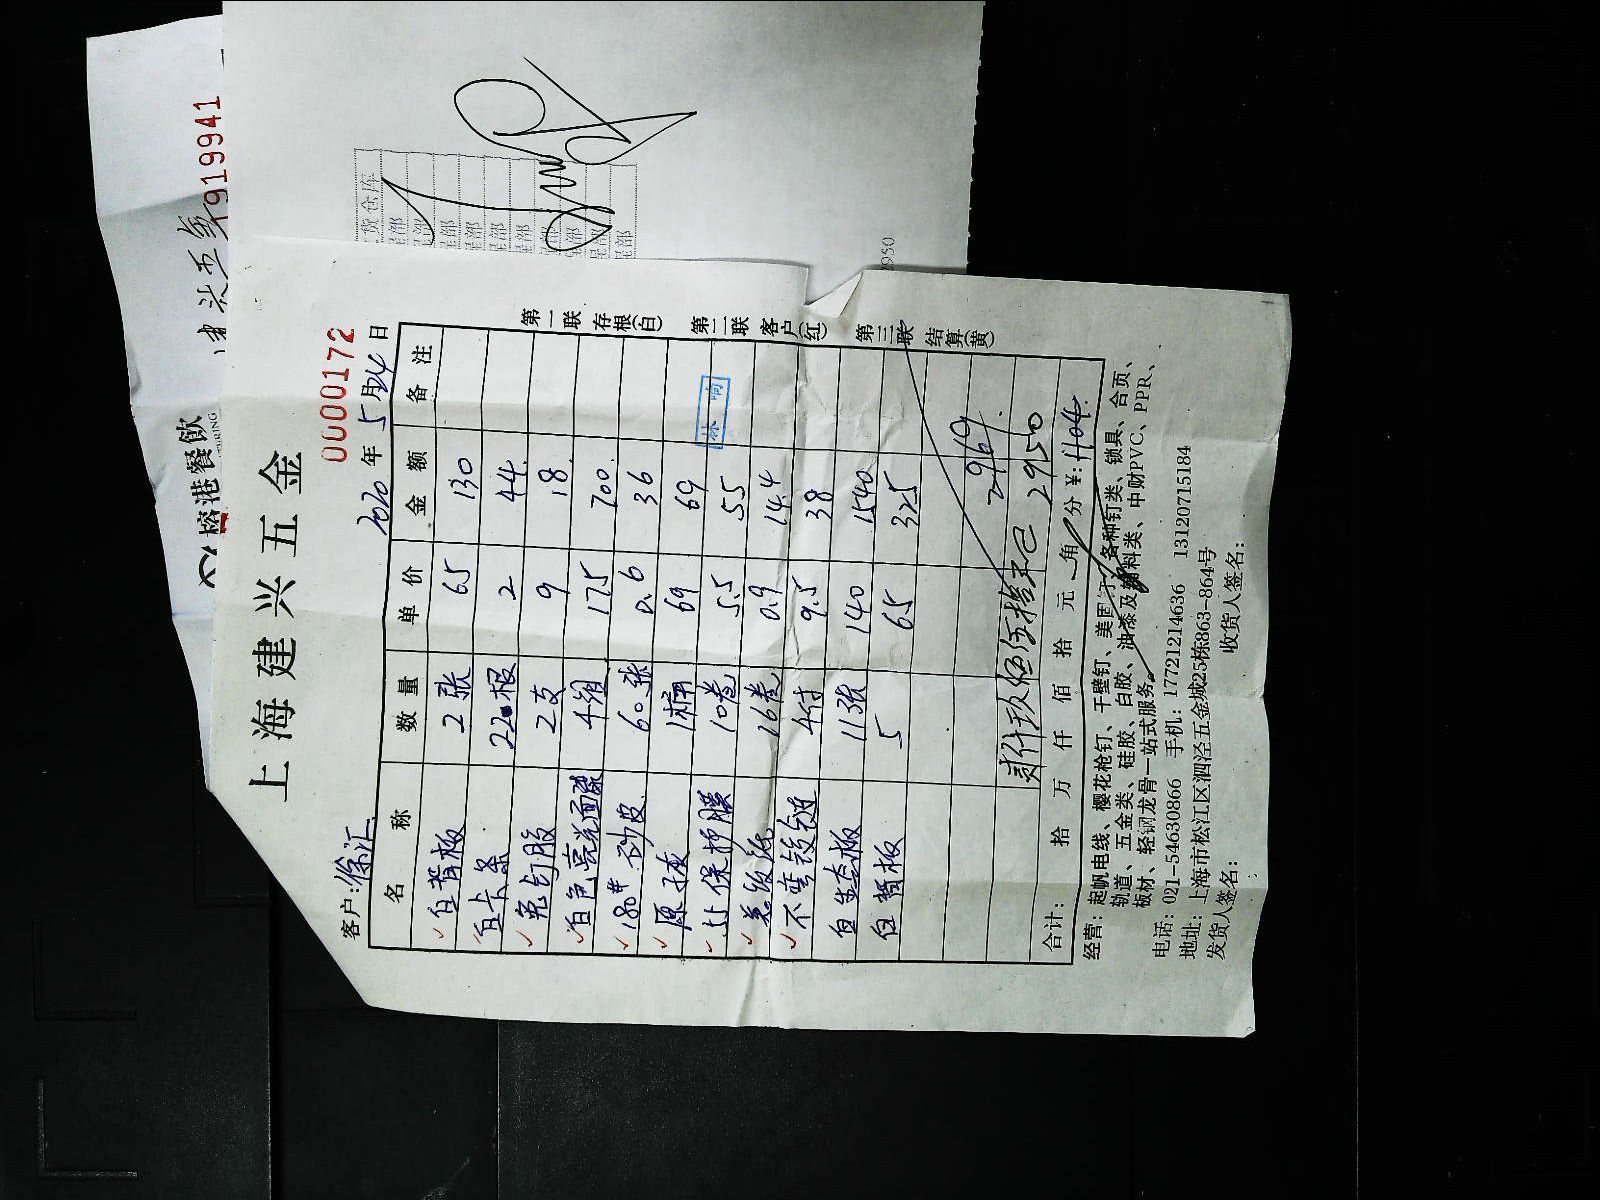 榕港餐飲
建兴五金
1919941
货仓库
2950
上海建兴五金
0000172
客户:徐汇
2020年5月24日
名 称 数量 单价 金额 备注
白背板 2张 65 130
白卡条 22根 2 44
免钉胶 2支 9 18
白色亮光面漆 4组 175 700
180# 砂皮 60张 0.6 36
原子灰 1桶 69 69
保护膜 10卷 5.5 55
美纹纸 16卷 0.9 14.4
不弯铰链 4付 9.5 38
白生态板 11张 140 1540
白背板 5 65 325
2969.
贰仟玖佰伍拾元 2950
合计: 拾 万 仟 佰 拾 元 角 分 ¥:1104.
第一联 存根(白) 第二联 客户(红) 第三联 结算(黄)
林 响
经营:起帆电线、樱花枪钉、干壁钉、美固钉、各种钉类、锁具、合页、
轨道、五金类、硅胶、白胶、油漆及辅料类、中财PVC、PPR、
板材、轻钢龙骨一站式服务。
电话:021-54630866 手机:17721214636 13120715184
地址:上海市松江区泗泾五金城25栋863-864号
发货人签名: 收货人签名: